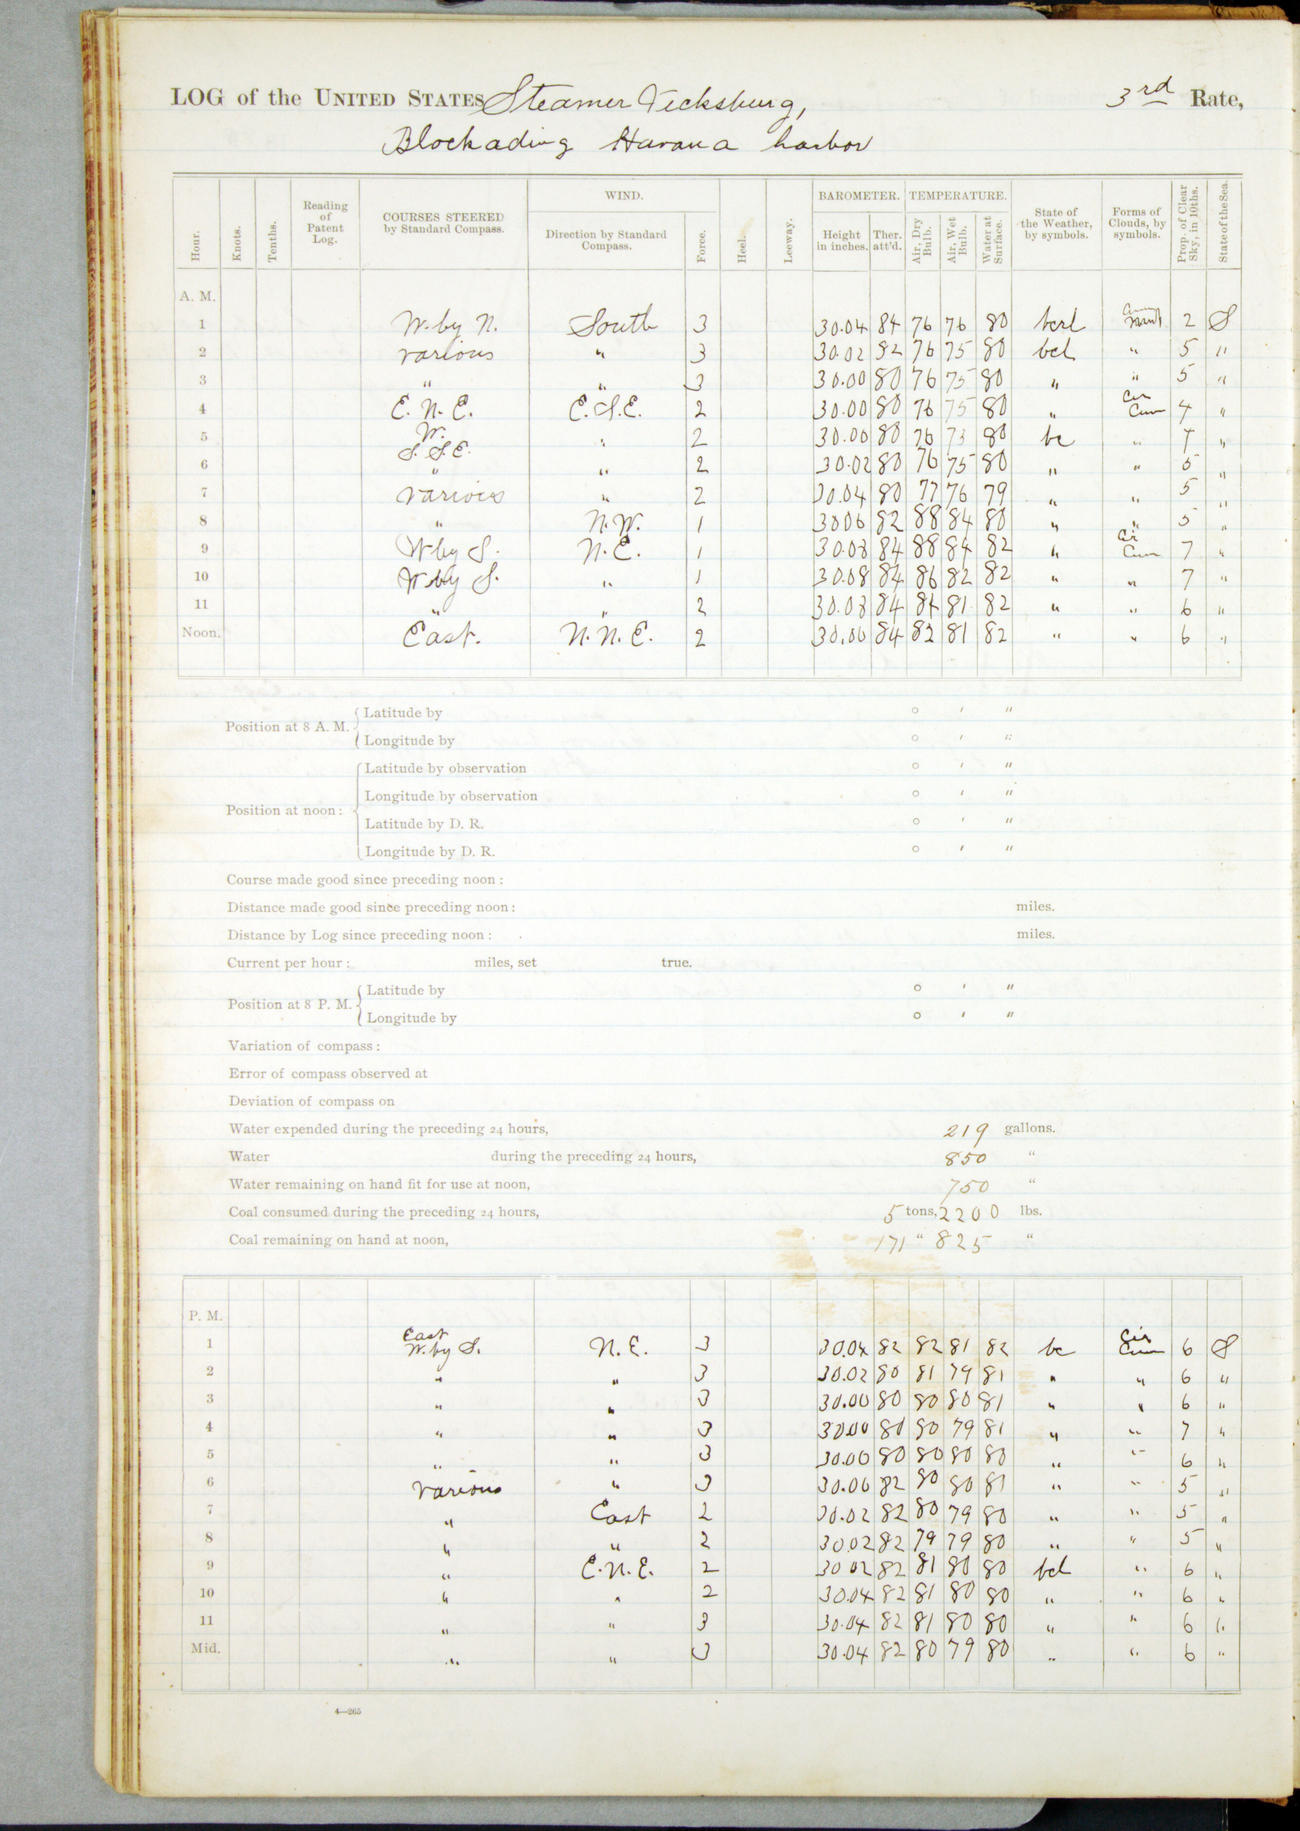 LOG of the UNITED STATES Steamer Vicksburg, 3rd Rate,
Blockading Havana harbor
Hour. Knots. Tenths. Reading of Patent Log. COURSES STEERED by Standard Compass. WIND. Direction by Standard Compass. Force. Heel. Leeway. BAROMETER. Height in inches. Ther. att'd. TEMPERATURE. Air, Dry Bulb. Air, Wet Bulb. Water at Surface. State of the Weather, by symbols. Forms of Clouds, by symbols. Prop. of Clear Sky, in 10ths. State of the Sea.
A. M.
1 W. by N. South 3 30.04 84 76 76 80 2 S
2 various " 3 30.02 82 76 75 80 bcl " 5 "
3 " " 3 30.00 80 76 75 80 " " 5 "
4 E. N. E. E.S.E. 2 30.00 80 76 75 80 " Cir Cum 4 "
5 W. S.S.E. " 2 30.00 80 76 73 80 bc " "
6 " " 2 30.02 80 76 75 80 " " 5 "
7 various " 2 30.04 80 77 76 79 " " 5 "
8 " N.W. 1 30 06 82 88 84 80 " " 5 "
9 W by S. N.E. 1 30.08 84 88 84 82 " Cir Cum 7 "
10 W. by S. " 1 30.08 84 86 82 82 " " 7 "
11 " " 2 30.08 84 84 81 82 " " 6 "
Noon. East. N. N. E. 2 30.06 84 82 81 82 " " 6 "
Position at 8 A. M. Latitude by ° ′ ″
Longitude by ° ′ ″
Latitude by observation ° ′ ″
Longitude by observation ° ′ ″
Position at noon:
Latitude by D. R. ° ′ ″
Longitude by D. R. ° ′ ″
Course made good since preceding noon:
Distance made good since preceding noon: miles.
Distance by Log since preceding noon: miles.
Current per hour: miles, set true.
Position at 8 P. M. Latitude by ° ′ ″
Longitude by ° ′ ″
Variation of compass:
Error of compass observed at
Deviation of compass on
Water expended during the preceding 24 hours, 219 gallons.
Water during the preceding 24 hours, 850 "
Water remaining on hand fit for use at noon, 750 "
Coal consumed during the preceding 24 hours, 5 tons, 2200 lbs.
Coal remaining on hand at noon, 171 " 825 "
P. M.
1 East W. by S. N. E. 3 30.04 82 82 81 82 bc Cir Cum 6 S
2 " " 3 30.02 80 81 79 81 " " 6 "
3 " " 3 30.00 80 80 80 81 " " 6 "
4 " " 3 30.00 80 80 79 81 " " 7 "
5 " " 3 30.00 80 80 80 80 " " 6 "
6 various " 3 30.00 82 80 80 81 " " 5 "
7 " East 2 30.02 82 80 79 80 " " 5 "
8 " " 2 30.02 82 79 79 80 " " 5 "
9 " E.N.E. 2 30 02 82 81 80 80 bcl " 6 "
10 " " 2 30.04 82 81 80 80 " " 6 "
11 " " 3 30.04 82 81 80 80 " " 6 "
Mid. " " 3 30.04 82 80 79 80 " " 6 "
4—265